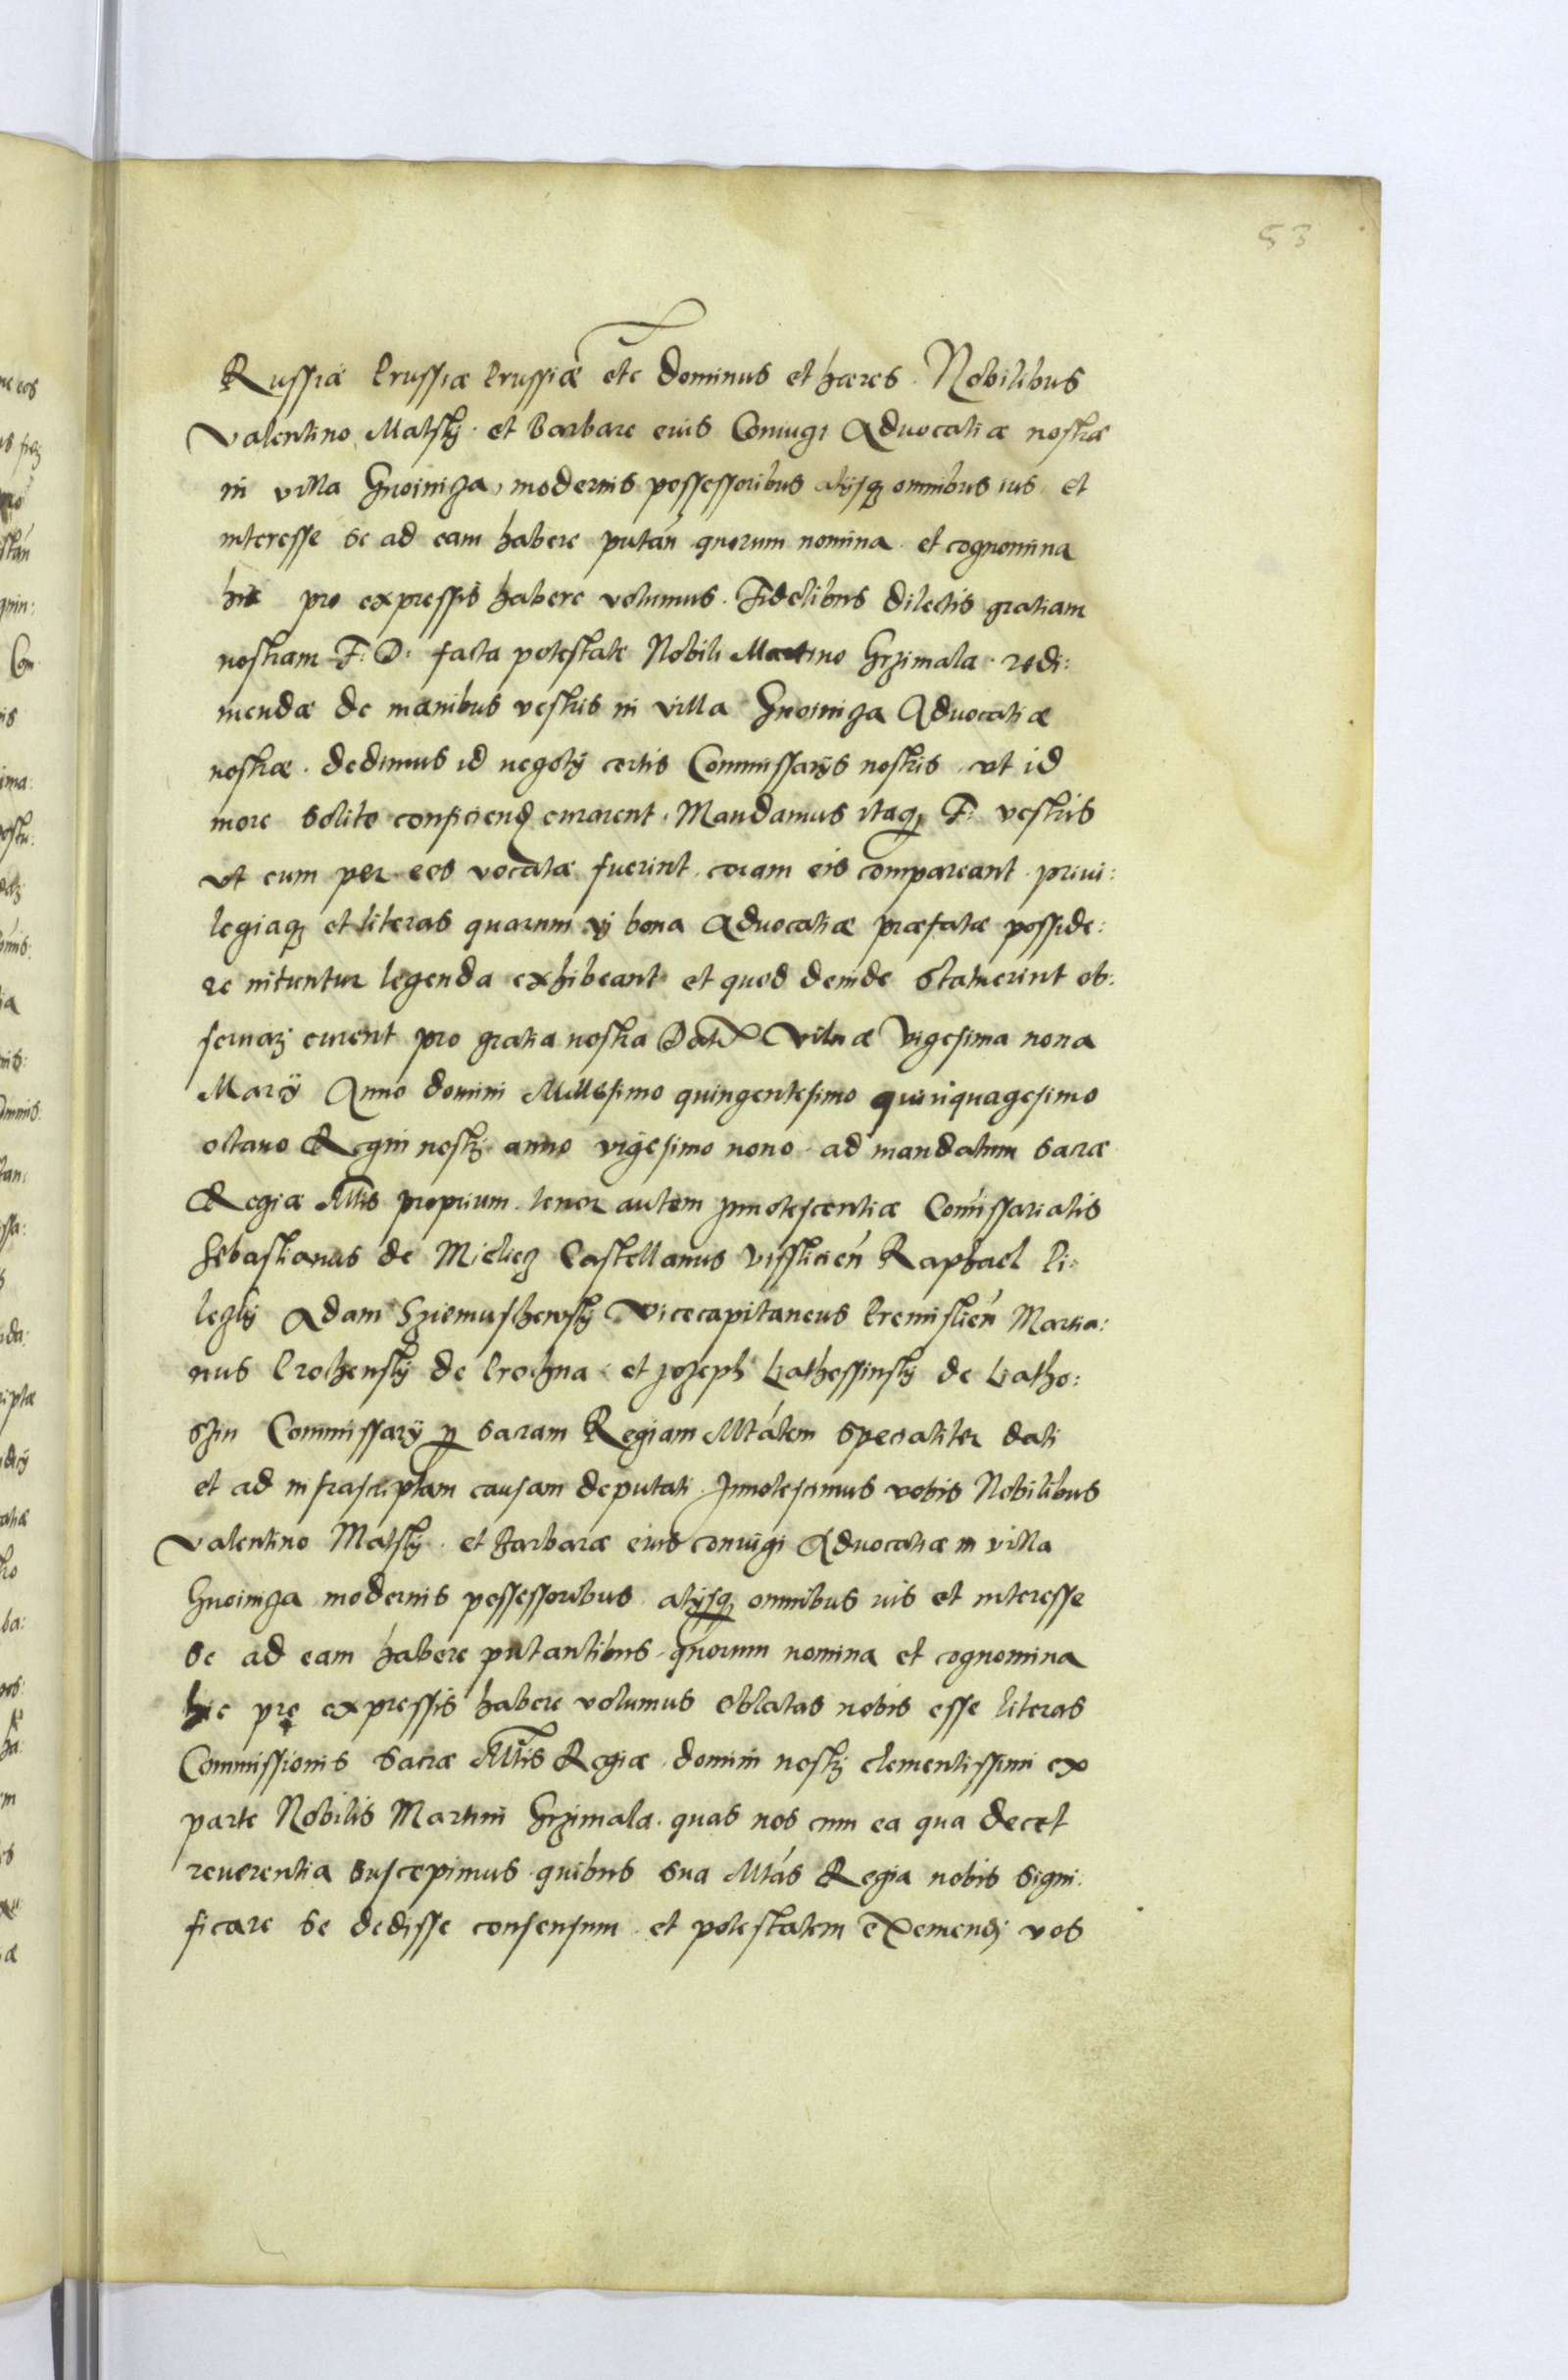 53
Russiæ Prussiæ Prussiæ etc Dominus et hæres. Nobilibus
Valentino Matsky et Barbare eius Coniugi Aduocatiæ nostræ
in villa Gnoinicza, modernis possessoribus alijsq; omnibus ius et
interesse se ad eam habere putan̄ quorum nomina et cognomina
hic pro expressis habere volumus. Fidelibus dilectis gratiam
nostram F: D: facta potestate Nobili Martino Grzimala redi:
mendæ de manibus vestris in villa Gnoinicza Aduocatiæ
nostræ. dedimus id negotÿ certis Commissarÿs nostris vt id
more solito conficiend curarent. Mandamus itaq; F: vestris
vt cum per eos vocatæ fuerint coram eis compareant priui:
legiaq; et literas quarum vj bona Aduocatiæ præfatæ posside:
re nituntur legenda exhibeant et quod deinde statuerint ob:
seruarj curent pro gratia nostra Dat Vilnæ Vigesima nona
Marÿ Anno domini Millesimo quingentesimo quinquagesimo
octauo Regni nostrj anno vigesimo nono ad mandatum sacræ
Regiæ Mtis proprium tenor autem Innotescentiæ Com̄issarialis
Sebastianus de Mielicz Castellanus Vissliciēn Raphael Pi:
leczky Adam Sziemuschewsky Vicecapitaneus Premislien̄ Martia:
nus Crochensky de Crochna et Jozeph Liathossinsky de Liatho:
szin Commissarÿ p sacram Regiam Mtátem specialiter dati
et ad infrascriptam causam deputati Innotescimus vobis Nobilibus
Valentino Matsky et Barbaræ eius coniugi Aduocatiæ in villa
Gnoinicza modernis possessoribus alijsq; omnibus ius et interesse
se ad eam habere putantibus quorum nomina et cognomina
hic pro expressis habere volumus oblatas nobis esse literas
Commissionis sacræ Mtis Regiæ domini nostrj clementissimi ex
parte Nobilis Martini Grzimala quas nos cum ea qua decet
reuerentia suscepimus quibus sua Mtás Regia nobis signi:
ficare se dedisse consensum et potestatem eximendj vos